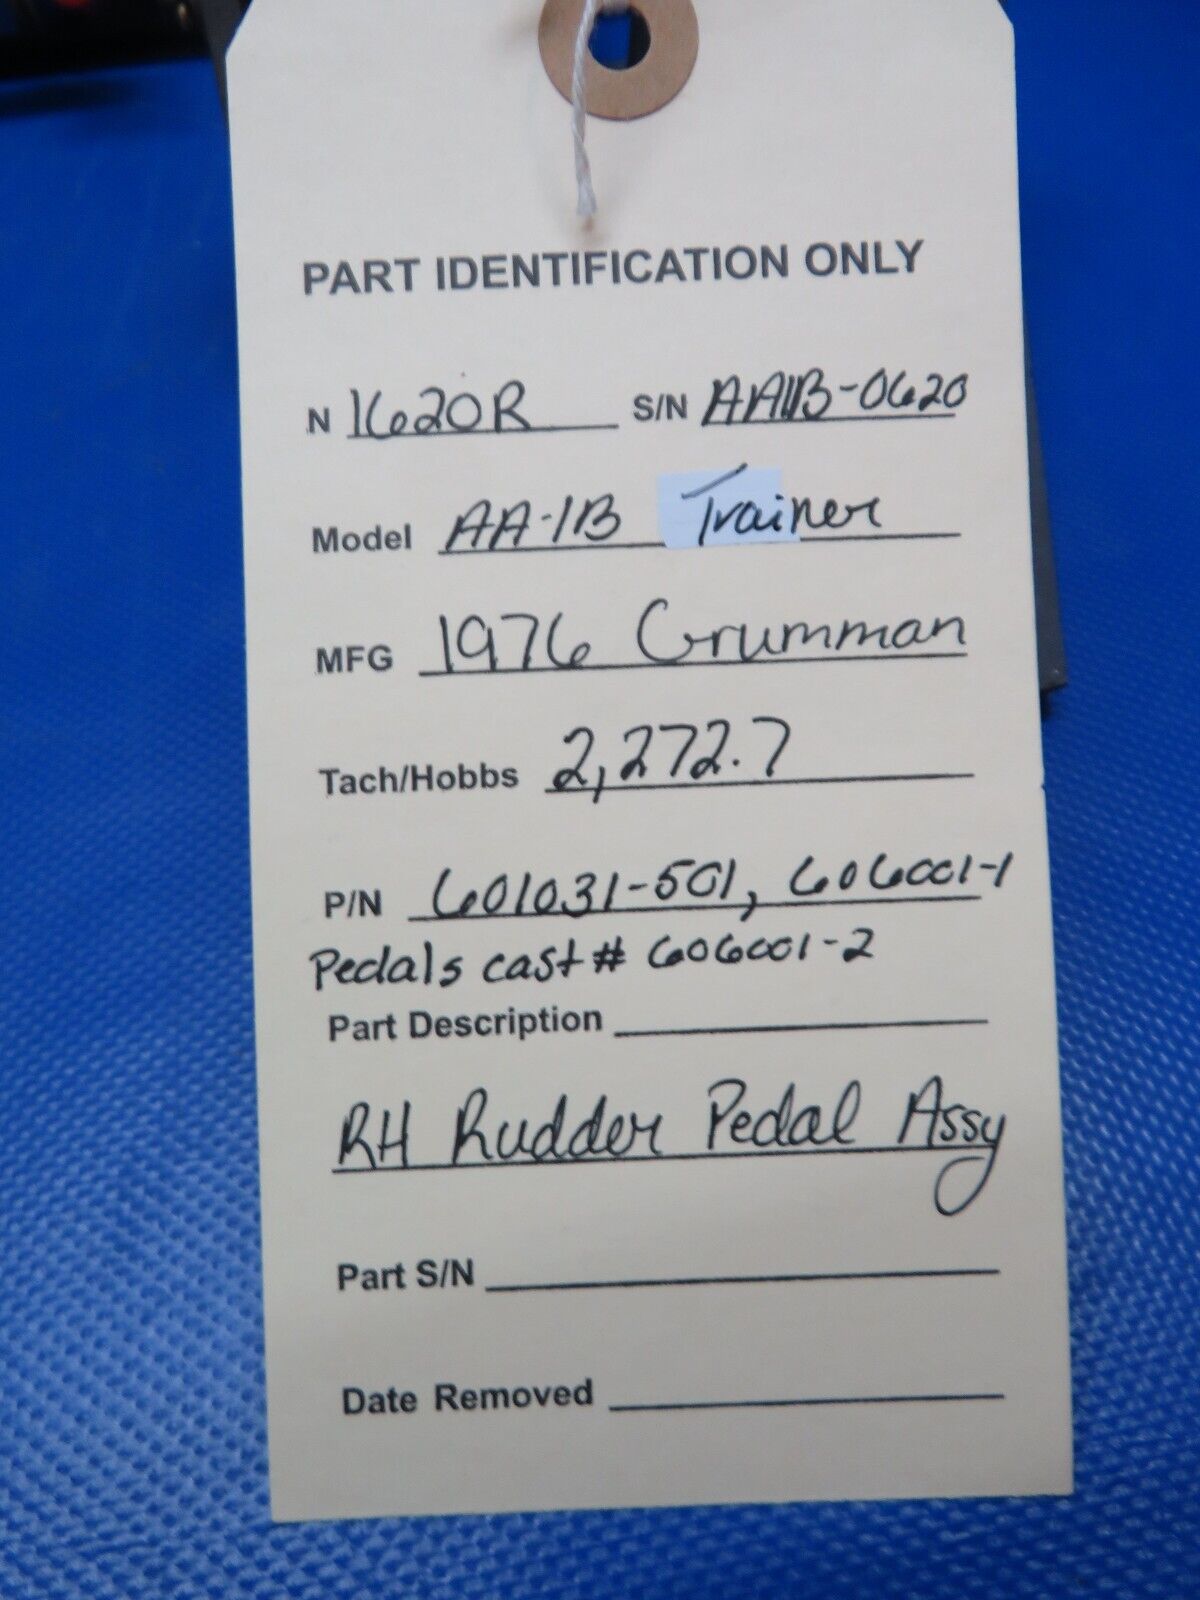 PART IDENTIFICATION ONLY
N 1620R S/N AA1B-0620
Model AA-1B Trainer
MFG 1976 Grumman
Tach/Hobbs 2,272.7
P/N 601031-501, 606001-1
Pedals cast # 606001-2
Part Description
RH Rudder Pedal Assy
Part S/N
Date Removed